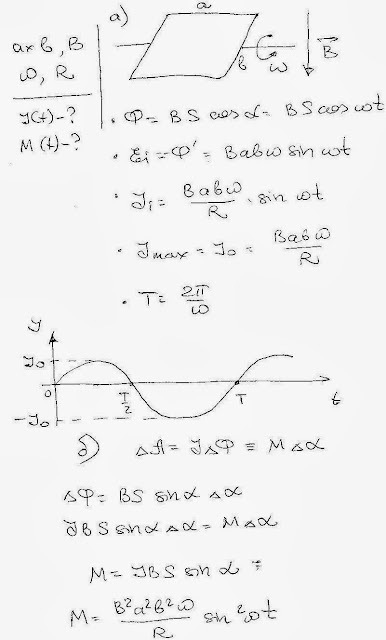 а)
a
a×b, B
ω, R
b
ω
B⃗
J(t)-?
M(t)-?
• Φ = BS cos α = BS cos ωt
• Ɛi = Φ' = Babω sin ωt
• Ji = Babω/R · sin ωt
• Jmax = J0 = Babω/R
• T = 2π/ω
J
J0
0
T/2
T
t
-J0
б) ΔA = JΔΦ = MΔα
ΔΦ = BS sin α Δα
JBS sin α Δα = MΔα
M = JBS sin α =
M = B²a²b²ω/R sin²ωt